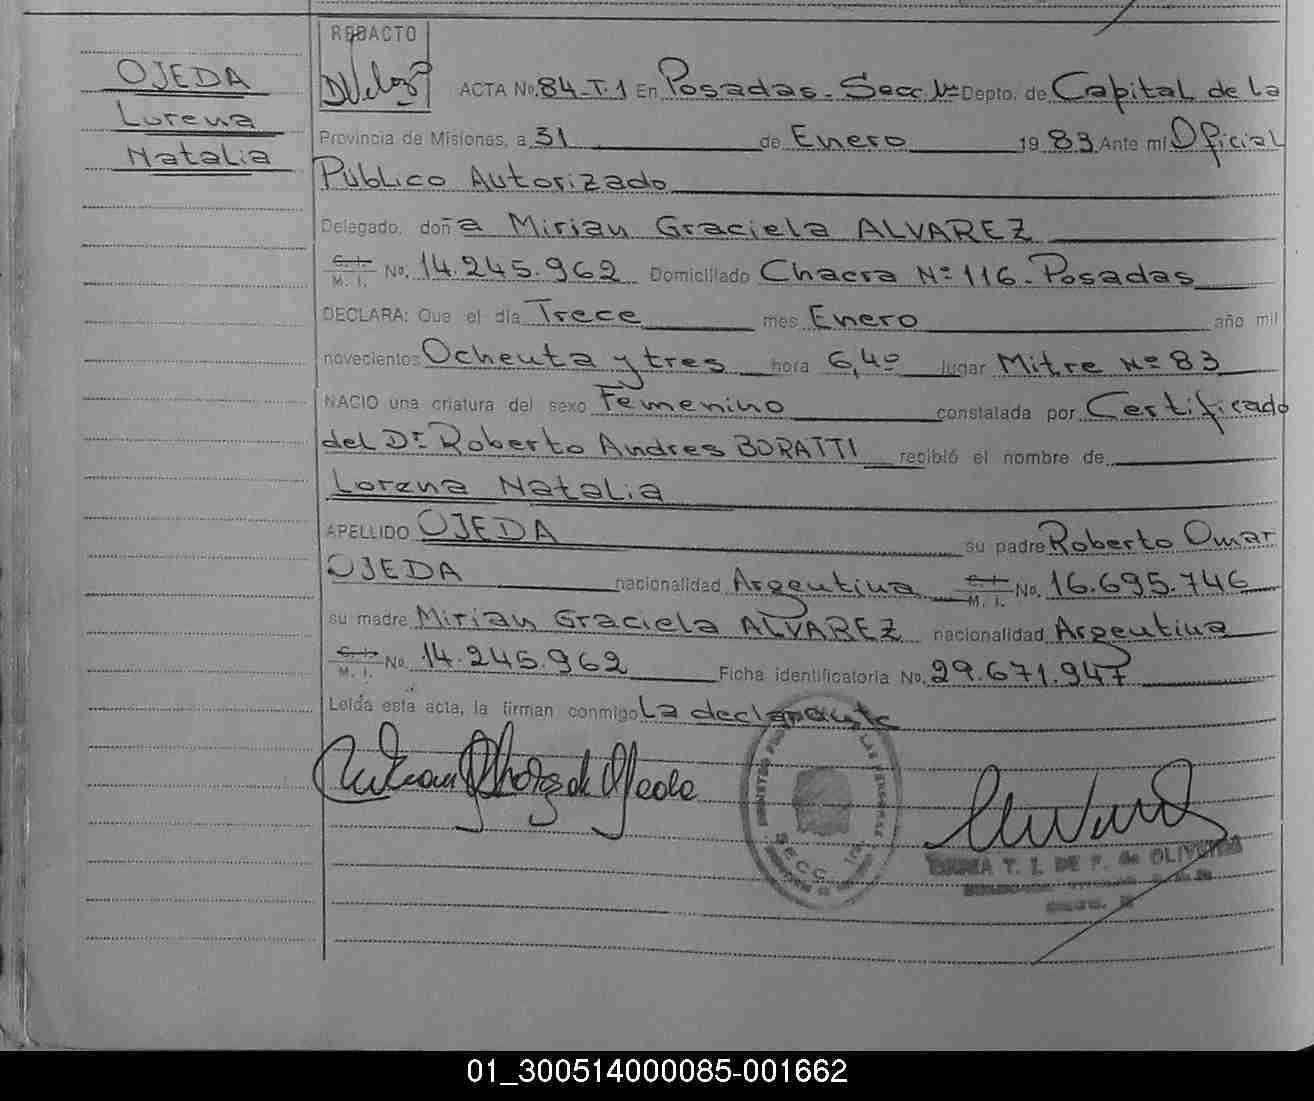 OJEDA
Lorena
Natalia
REDACTO
ACTA No. 84-T.1 En Posadas. Secc 1ª Depto. de Capital de la
Provincia de Misiones, a 31 de Enero 19 83 Ante mí Oficial
Público Autorizado
Delegado, doña Mirian Graciela ALVAREZ
C. I.
M. I. No. 14.245.962 Domiciliado Chacra Nº 116. Posadas
DECLARA: Que el día Trece mes Enero año mil
novecientos Ochenta y tres hora 6,40 lugar Mitre Nº 83
NACIO una criatura del sexo Femenino constatada por Certificado
del Dr. Roberto Andres BORATTI recibió el nombre de
Lorena Natalia
APELLIDO OJEDA su padre Roberto Omar
OJEDA nacionalidad Argentina C. I.
M. I. No. 16.695.746
su madre Mirian Graciela ALVAREZ nacionalidad Argentina
C. I.
M. I. No. 14.245.962 Ficha identificatoria No. 29.671.947
Leída esta acta, la firman conmigo La declarante
LAS PERSONAS
SECC. 1ª
T. I. DE P. de OLIVEIRA
01_300514000085-001662